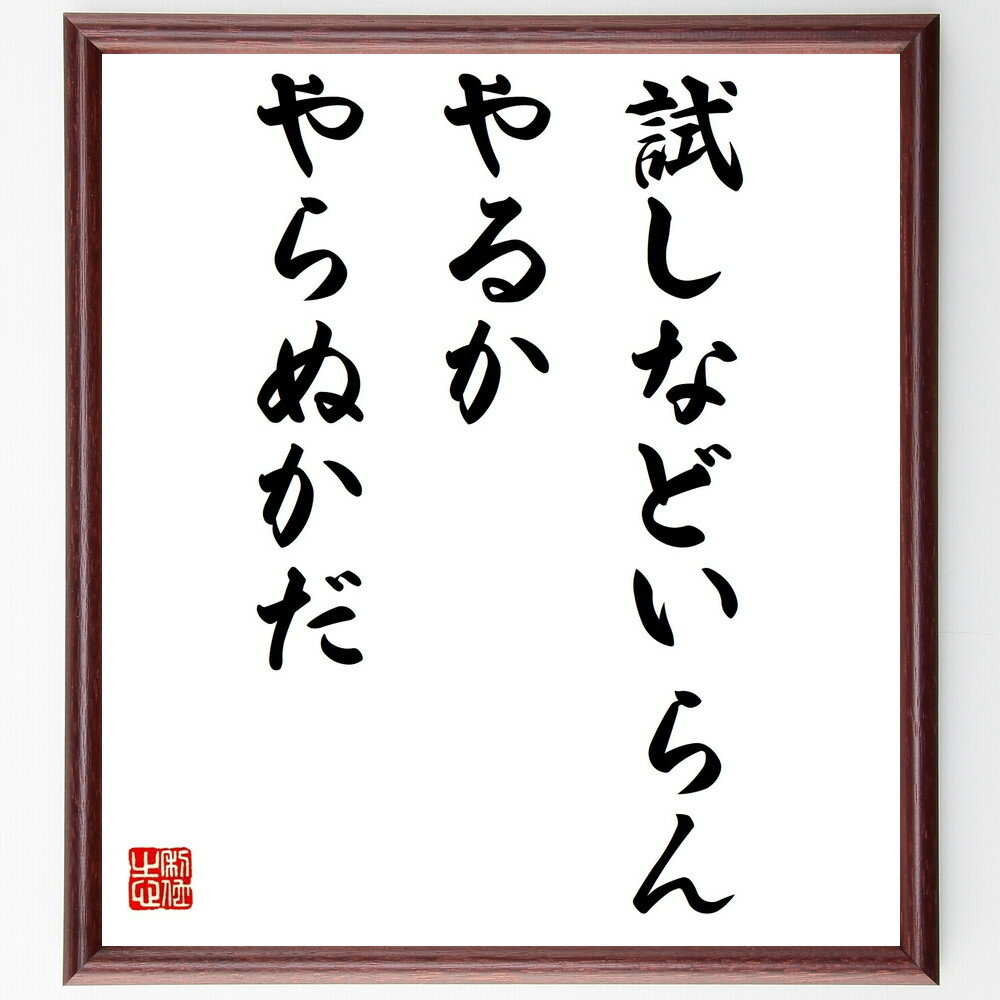 試しなどいらん
やるか
やらぬかだ